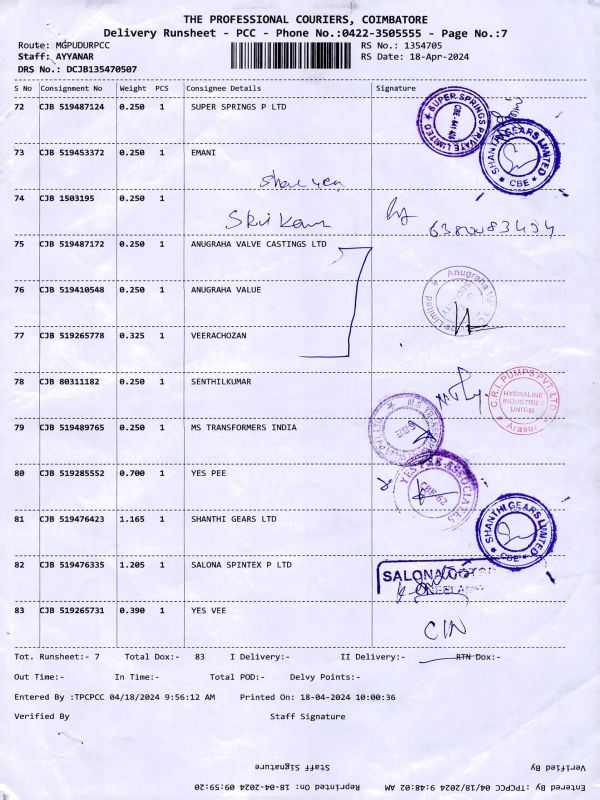 THE PROFESSIONAL COURIERS, COIMBATORE
Delivery Runsheet - PCC - Phone No.:0422-3505555 - Page No.:7
Route: MGPUDURPCC RS No.: 1354705
Staff: AYYANAR RS Date: 18-Apr-2024
DRS No.: DCJB135470507
S No Consignment No Weight PCS Consignee Details Signature
72 CJB 519487124 0.250 1 SUPER SPRINGS P LTD
SUPER SPRINGS PRIVATE LIMITED
SHANTHI GEARS LIMITED
CBE
73 CJB 519453372 0.250 1 EMANI
74 CJB 1503195 0.250 1
75 CJB 519487172 0.250 1 ANUGRAHA VALVE CASTINGS LTD
76 CJB 519410548 0.250 1 ANUGRAHA VALUE
77 CJB 519265778 0.325 1 VEERACHOZAN
78 CJB 80311182 0.250 1 SENTHILKUMAR
C.R.I. PUMPS PVT. LTD
HYDRALINE
INDUSTRIES
UNIT-II
Arasur
79 CJB 519489765 0.250 1 MS TRANSFORMERS INDIA
80 CJB 519285552 0.700 1 YES PEE
81 CJB 519476423 1.165 1 SHANTHI GEARS LTD
SHANTHI GEARS LIMITED
CBE
82 CJB 519476335 1.205 1 SALONA SPINTEX P LTD
SALONA
83 CJB 519265731 0.390 1 YES VEE
Tot. Runsheet:- 7 Total Dox:- 83 I Delivery:- II Delivery:- RTN Dox:-
Out Time:- In Time:- Total POD:- Delvy Points:-
Entered By :TPCPCC 04/18/2024 9:56:12 AM Printed On: 18-04-2024 10:00:36
Verified By Staff Signature
Verified By Staff Signature
Entered By: TPCPCC 04/18/2024 9:48:02 AM Reprinted On: 18-04-2024 09:59:20